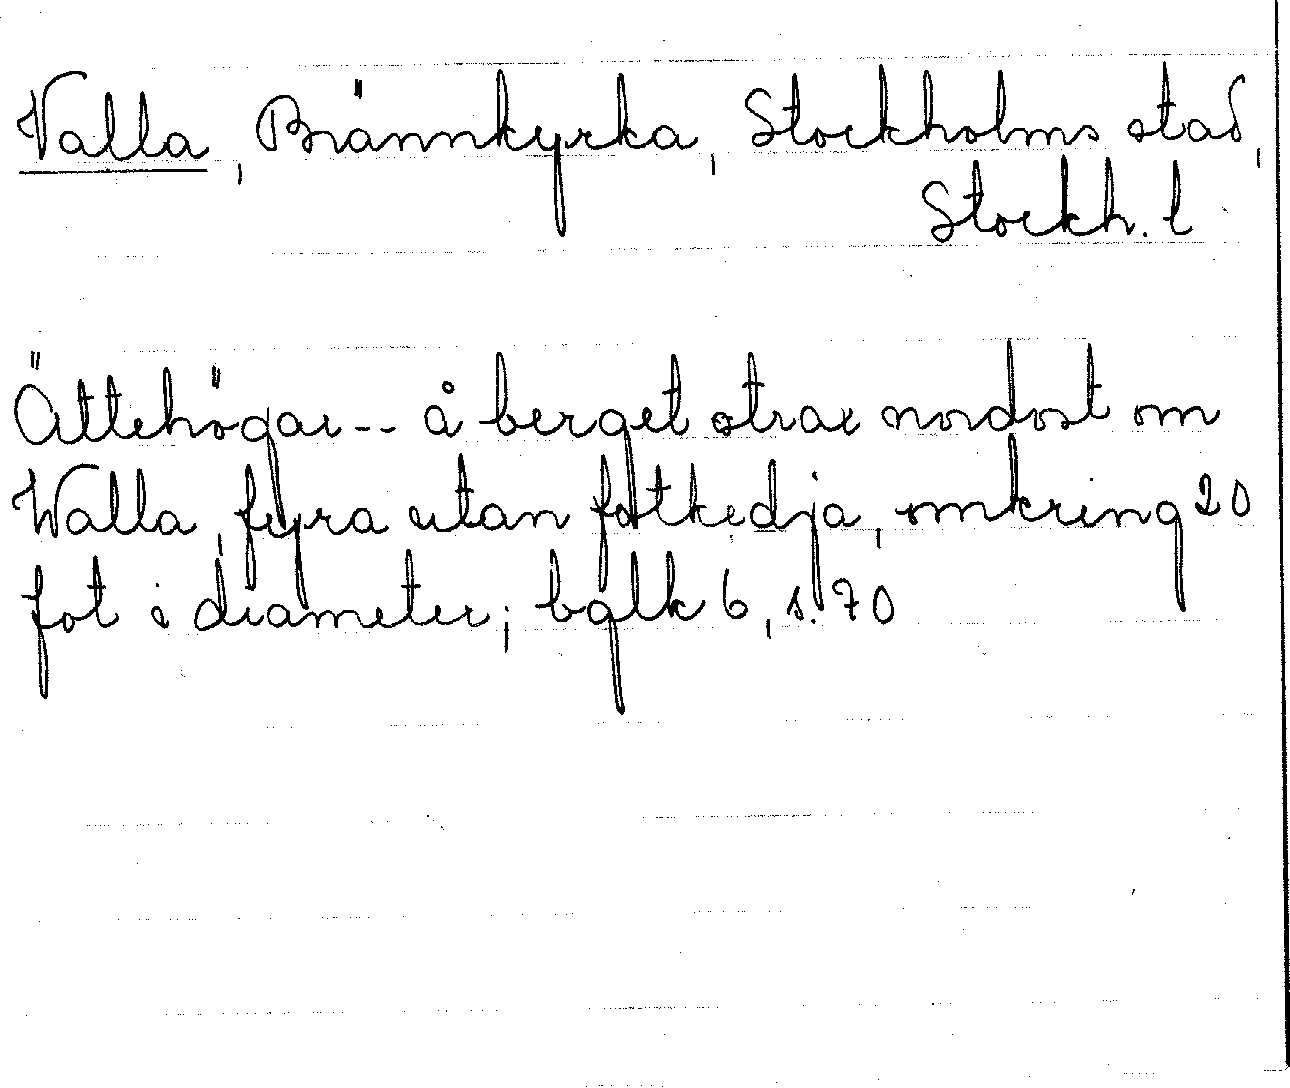 Valla, Brännkyrka, Stockholms stad,
Stockh. l
Ättehögar -- å berget strax nordost om
Walla, fyra utan fotkedja, omkring 20
fot i diameter; balk 6, s. 70